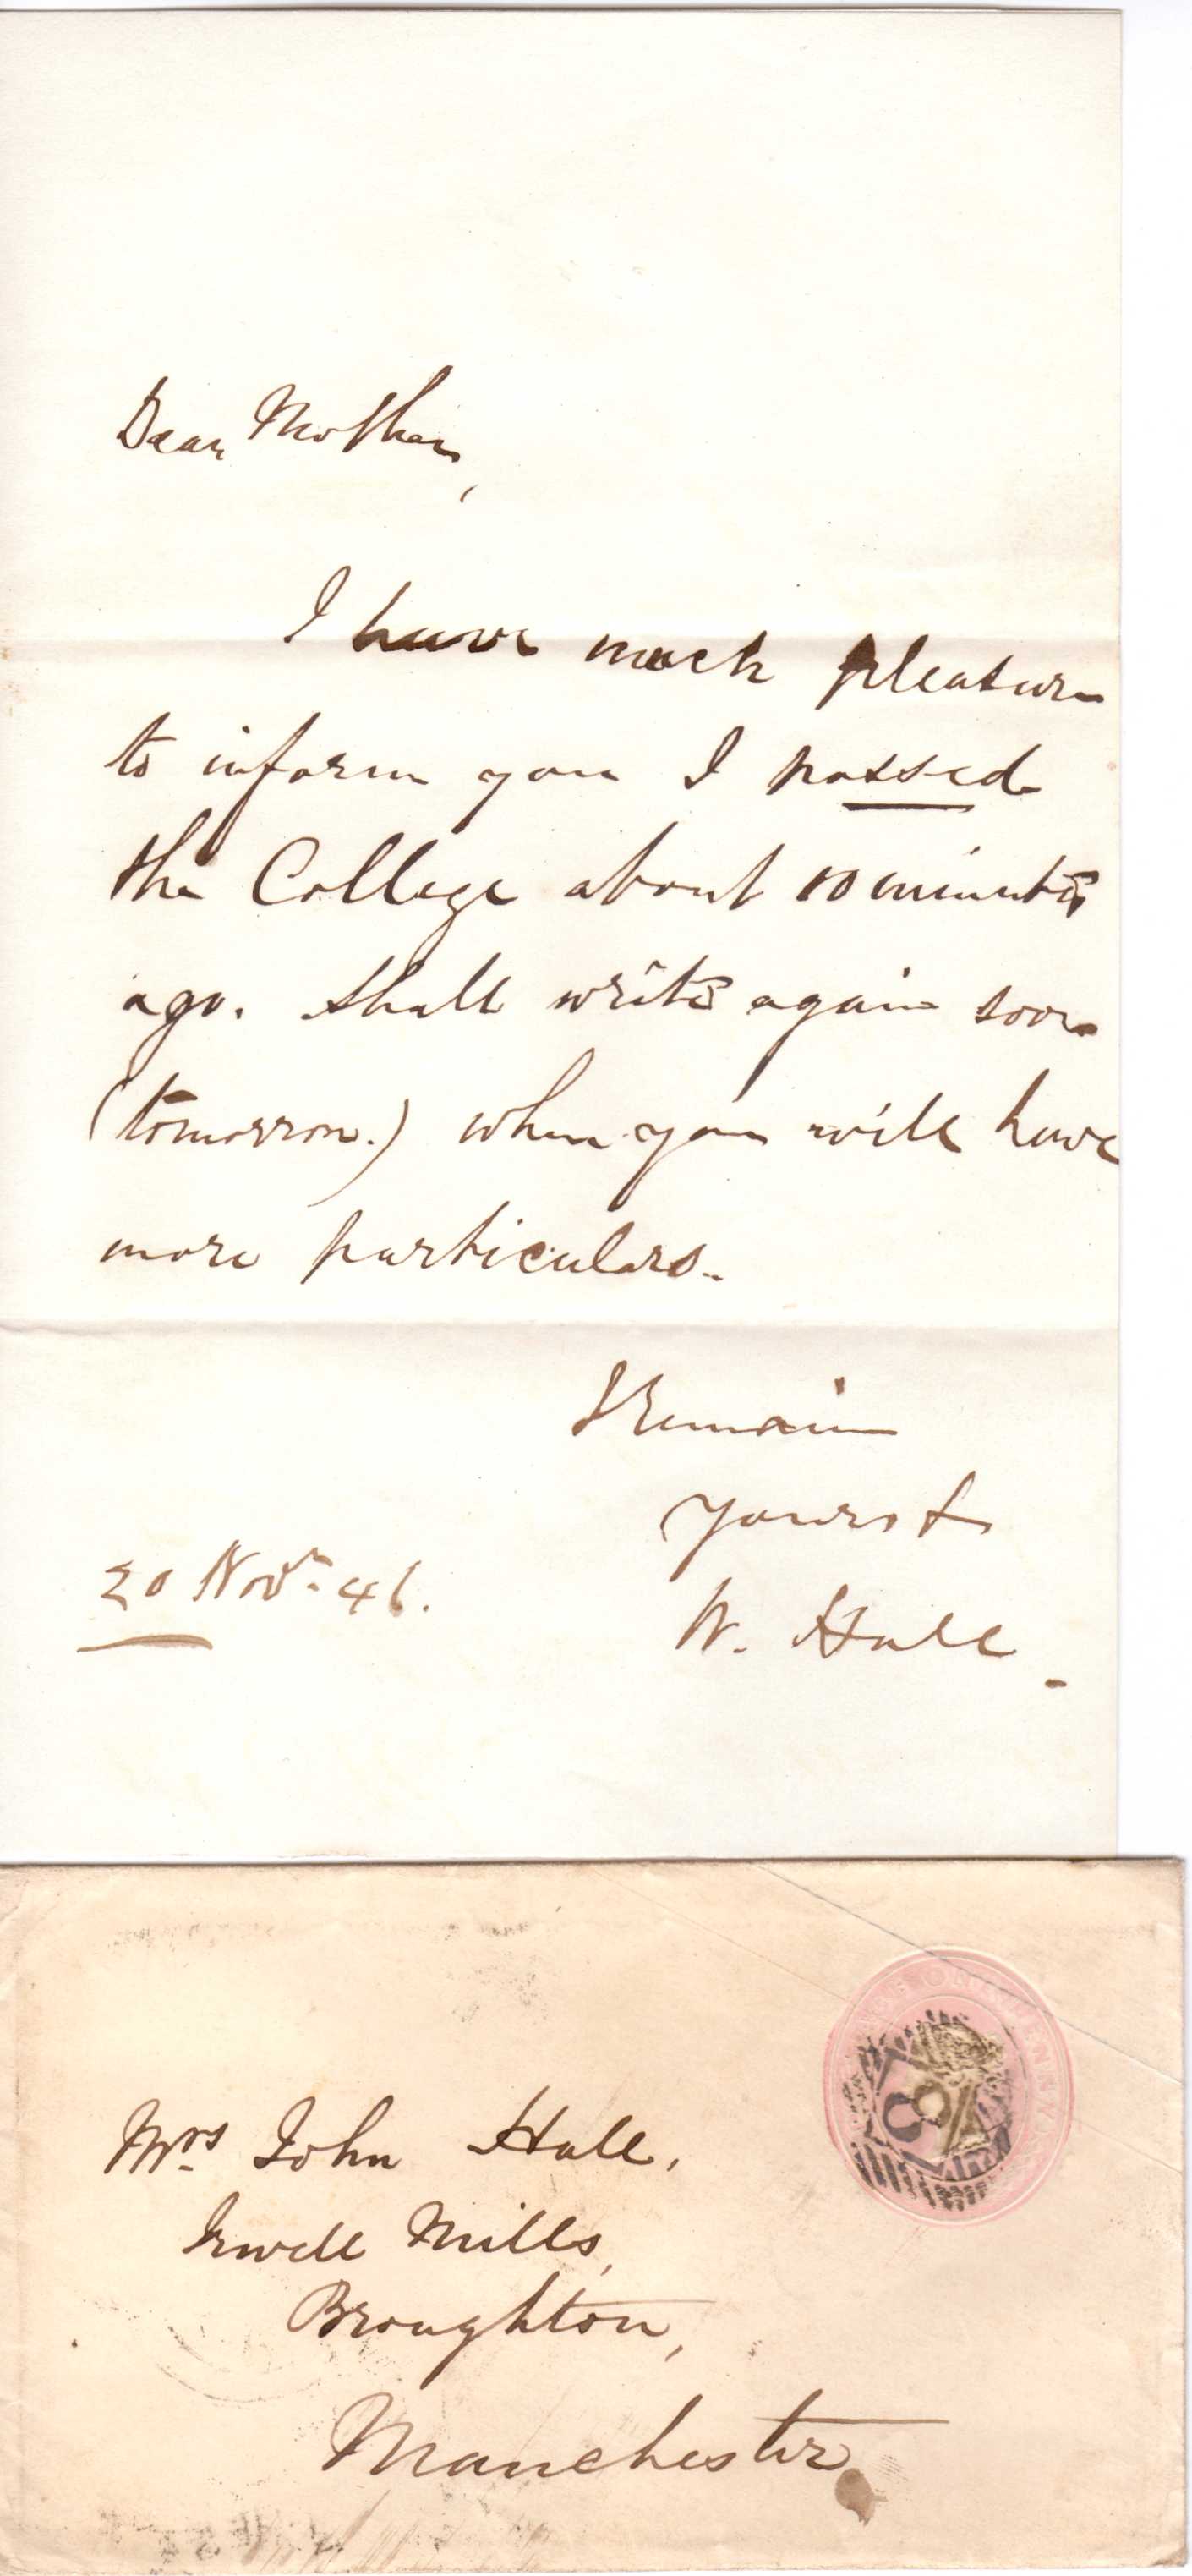 Dear Mother,
I have much pleasure
to inform you I passed
the College about 10 minutes
ago. Shall write again soon
(tomorrow.) when you will have
more particulars.
I Remain
Yours &
W. Hall.
20 Novr. 46.
POSTAGE ONE PENNY
8
Mrs. John Hall,
Irwell Mills,
Broughton,
Manchester